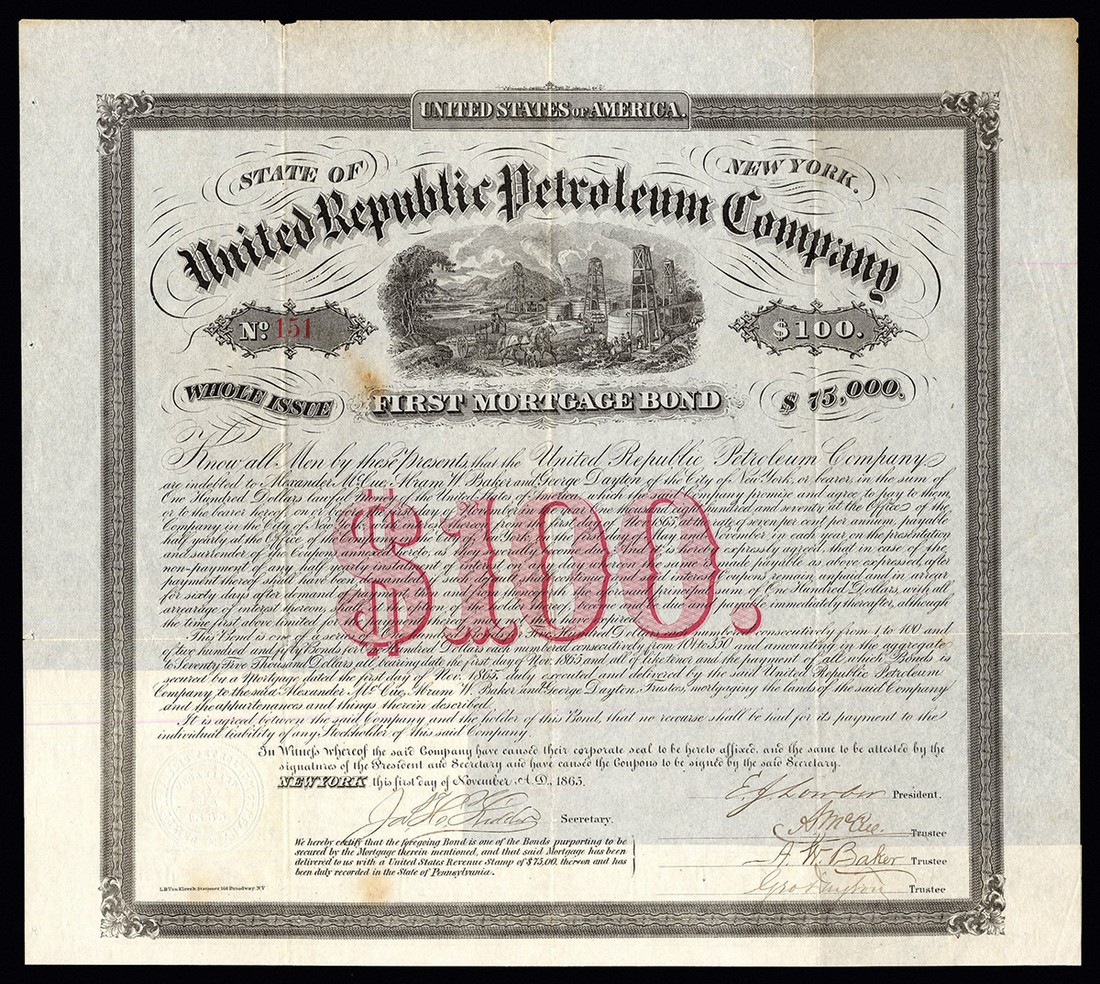 UNITED STATES OF AMERICA.
STATE OF NEW YORK.
United Republic Petroleum Company
No. 151
$100.
WHOLE ISSUE
FIRST MORTGAGE BOND
$75,000.
Know all Men by these Presents, that the United Republic Petroleum Company
are indebted to Alexander McCue, Abram W. Baker and George Dayton of the City of New York, or bearer, in the sum of
One Hundred Dollars lawful money of the United States of America, which the said Company promise and agree to pay to them,
or to the bearer hereof, on the first day of November in the year One thousand eight hundred and seventy at the Office of the
Company in the City of New York, with interest thereon from the first day of Nov. 1865 at the rate of seven per cent per annum, payable
half yearly at the Office of the Company in the City of New York on the first day of May and November in each year, on the presentation
and surrender of the Coupons annexed hereto, as they severally become due. And it is hereby expressly agreed, that in case of the
non-payment of any half yearly instalment of interest made payable as above expressed, after
payment thereof shall have been demanded, if such default shall continue and interest coupons remain unpaid and in arrear
for sixty days after demand the aforesaid principal sum of One Hundred Dollars, with all
arrearage of interest thereon, shall at the option of the holder become due and payable immediately thereafter, although
the time first above limited for the payment thereof may not have expired.
This Bond is one of a series of Dollars each numbered consecutively from 1 to 100 and
of two hundred and fifty Bonds for One hundred Dollars each numbered consecutively from 101 to 350 and amounting in the aggregate
to Seventy Five Thousand Dollars all bearing date the first day of Nov. 1865 and all of like tenor and the payment of all which Bonds is
secured by a Mortgage dated the first day of Nov. 1865, duly executed and delivered by the said United Republic Petroleum
Company to the said Alexander McCue, Abram W. Baker and George Dayton, Trustees, mortgaging the lands of the said Company
and the appurtenances and things therein described.
It is agreed, between the said Company and the holder of this Bond, that no recourse shall be had for its payment to the
individual liability of any Stockholder of this said Company.
$100.
In Witness whereof the said Company have caused their corporate seal to be hereto affixed, and the same to be attested by the
signatures of the President and Secretary and have caused the Coupons to be signed by the said Secretary.
NEW YORK this first day of November A.D. 1865.
President.
Secretary.
A. McCue. Trustee
We hereby certify that the foregoing Bond is one of the Bonds purporting to be
secured by the Mortgage therein mentioned, and that said Mortgage has been
delivered to us with a United States Revenue Stamp of $75,00. thereon and has
been duly recorded in the State of Pennsylvania.
A. W. Baker Trustee
Geo Dayton Trustee